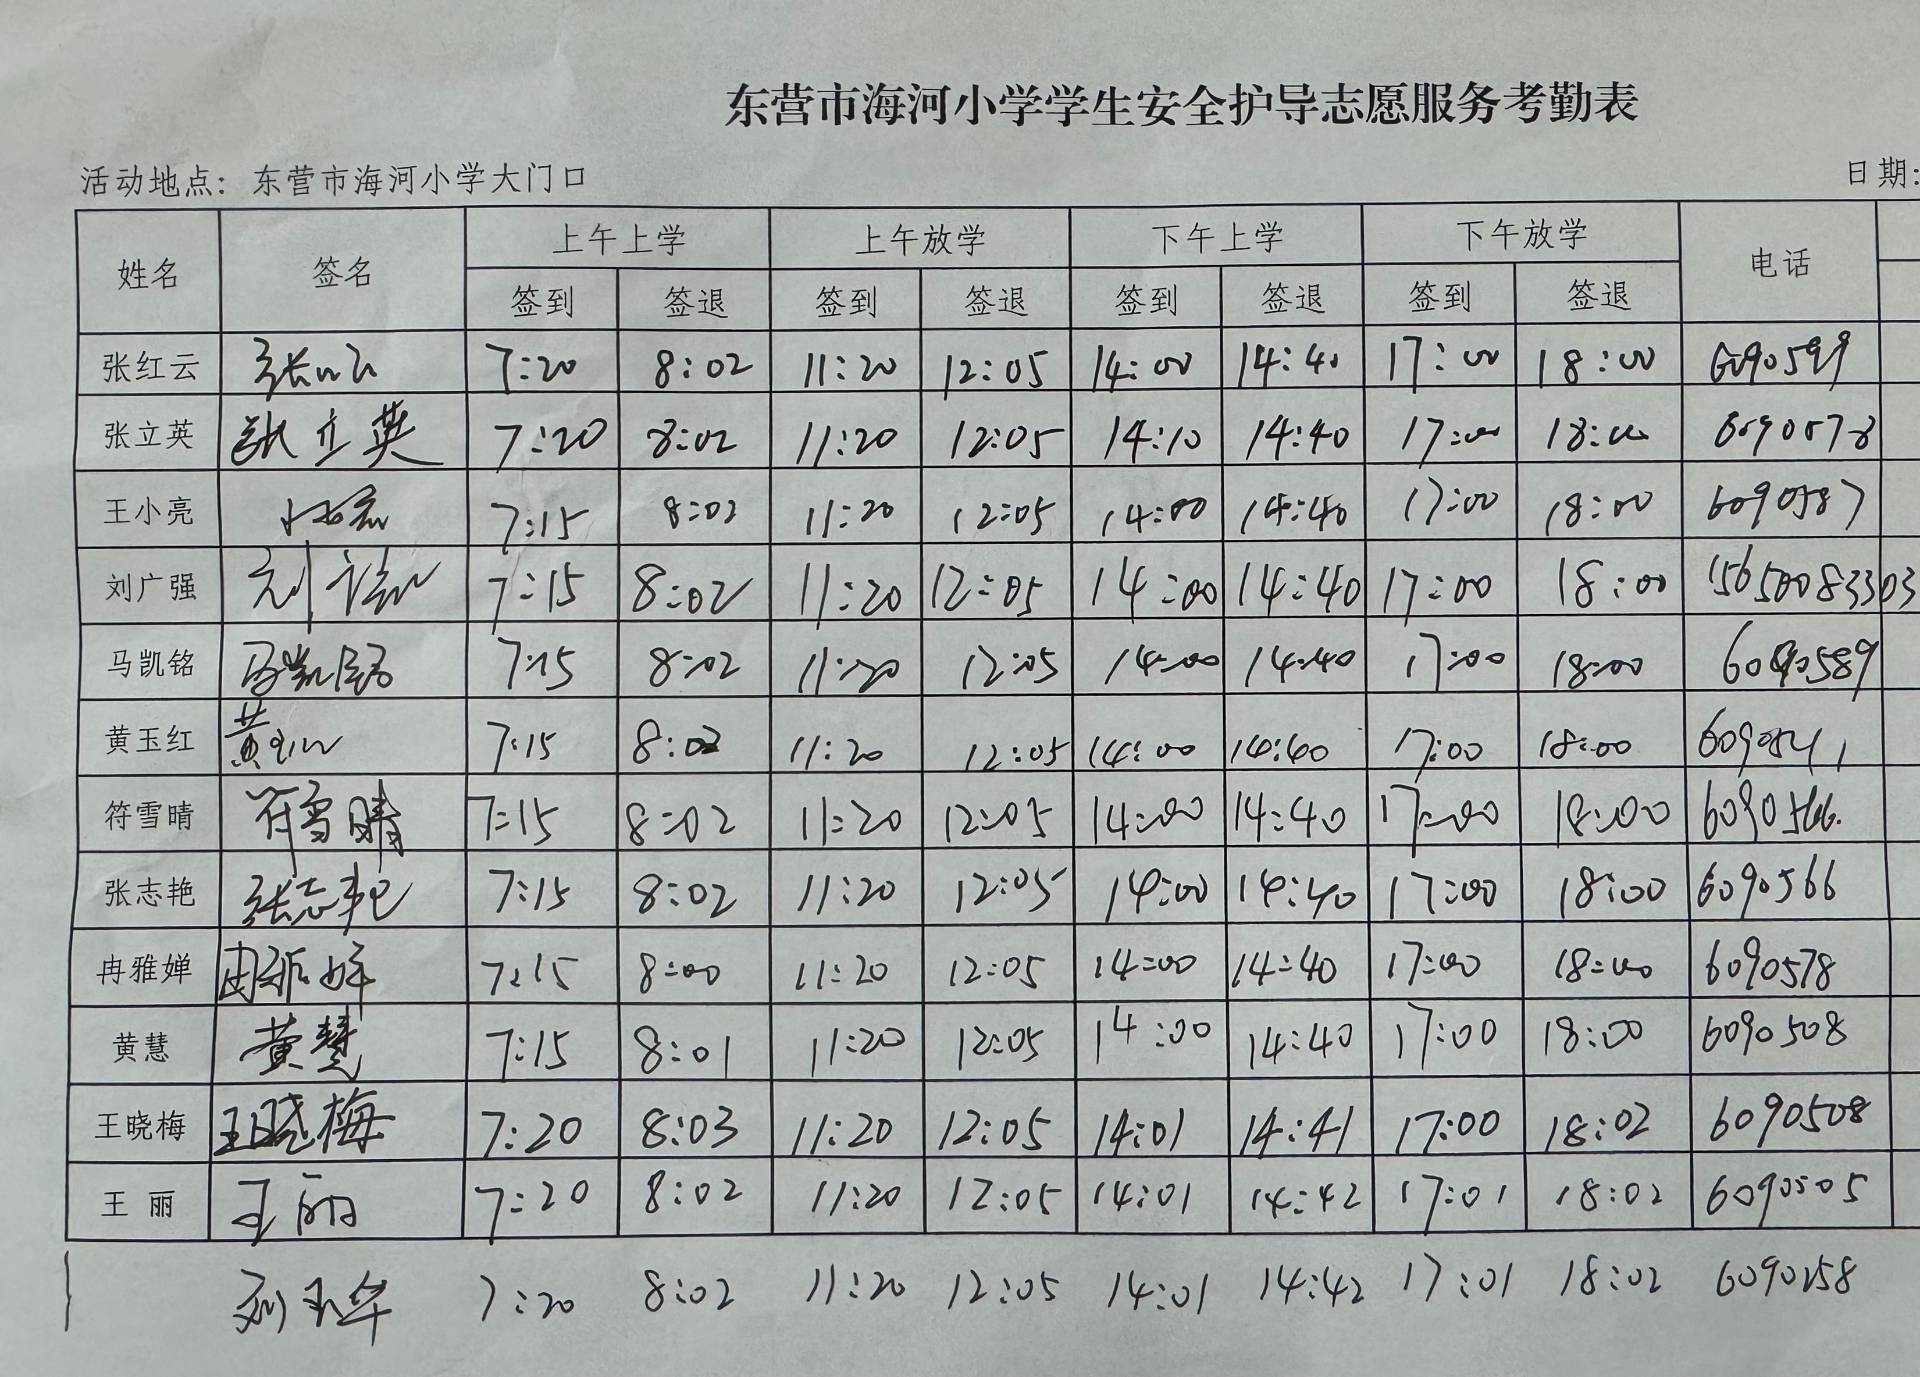 东营市海河小学学生安全护导志愿服务考勤表
活动地点: 东营市海河小学大门口 日期:
姓名 签名 上午上学 上午放学 下午上学 下午放学 电话
签到 签退 签到 签退 签到 签退 签到 签退
张红云 张红云 7:20 8:02 11:20 12:05 14:00 14:40 17:00 18:00 6090599
张立英 张立英 7:20 8:02 11:20 12:05 14:10 14:40 17:00 18:00 6090578
王小亮 7:15 8:02 11:20 12:05 14:00 14:40 17:00 18:00 6090587
刘广强 7:15 8:02 11:20 12:05 14:00 14:40 17:00 18:00 15650083303
马凯铭 马凯铭 7:15 8:02 11:20 12:05 14:00 14:40 17:00 18:00 6090589
黄玉红 黄玉红 7:15 8:02 11:20 12:05 14:00 14:40 17:00 18:00 6090541
符雪晴 符雪晴 7:15 8:02 11:20 12:05 14:00 14:40 17:00 18:00 6090566.
张志艳 张志艳 7:15 8:02 11:20 12:05 14:00 14:40 17:00 18:00 6090566
冉雅婵 冉雅婵 7:15 8:00 11:20 12:05 14:00 14:40 17:00 18:00 6090578
黄慧 黄慧 7:15 8:01 11:20 12:05 14:00 14:40 17:00 18:00 6090508
王晓梅 王晓梅 7:20 8:03 11:20 12:05 14:01 14:41 17:00 18:02 6090508
王 丽 王丽 7:20 8:02 11:20 12:05 14:01 14:42 17:01 18:02 6090505
刘玉华 7:20 8:02 11:20 12:05 14:01 14:42 17:01 18:02 6090258